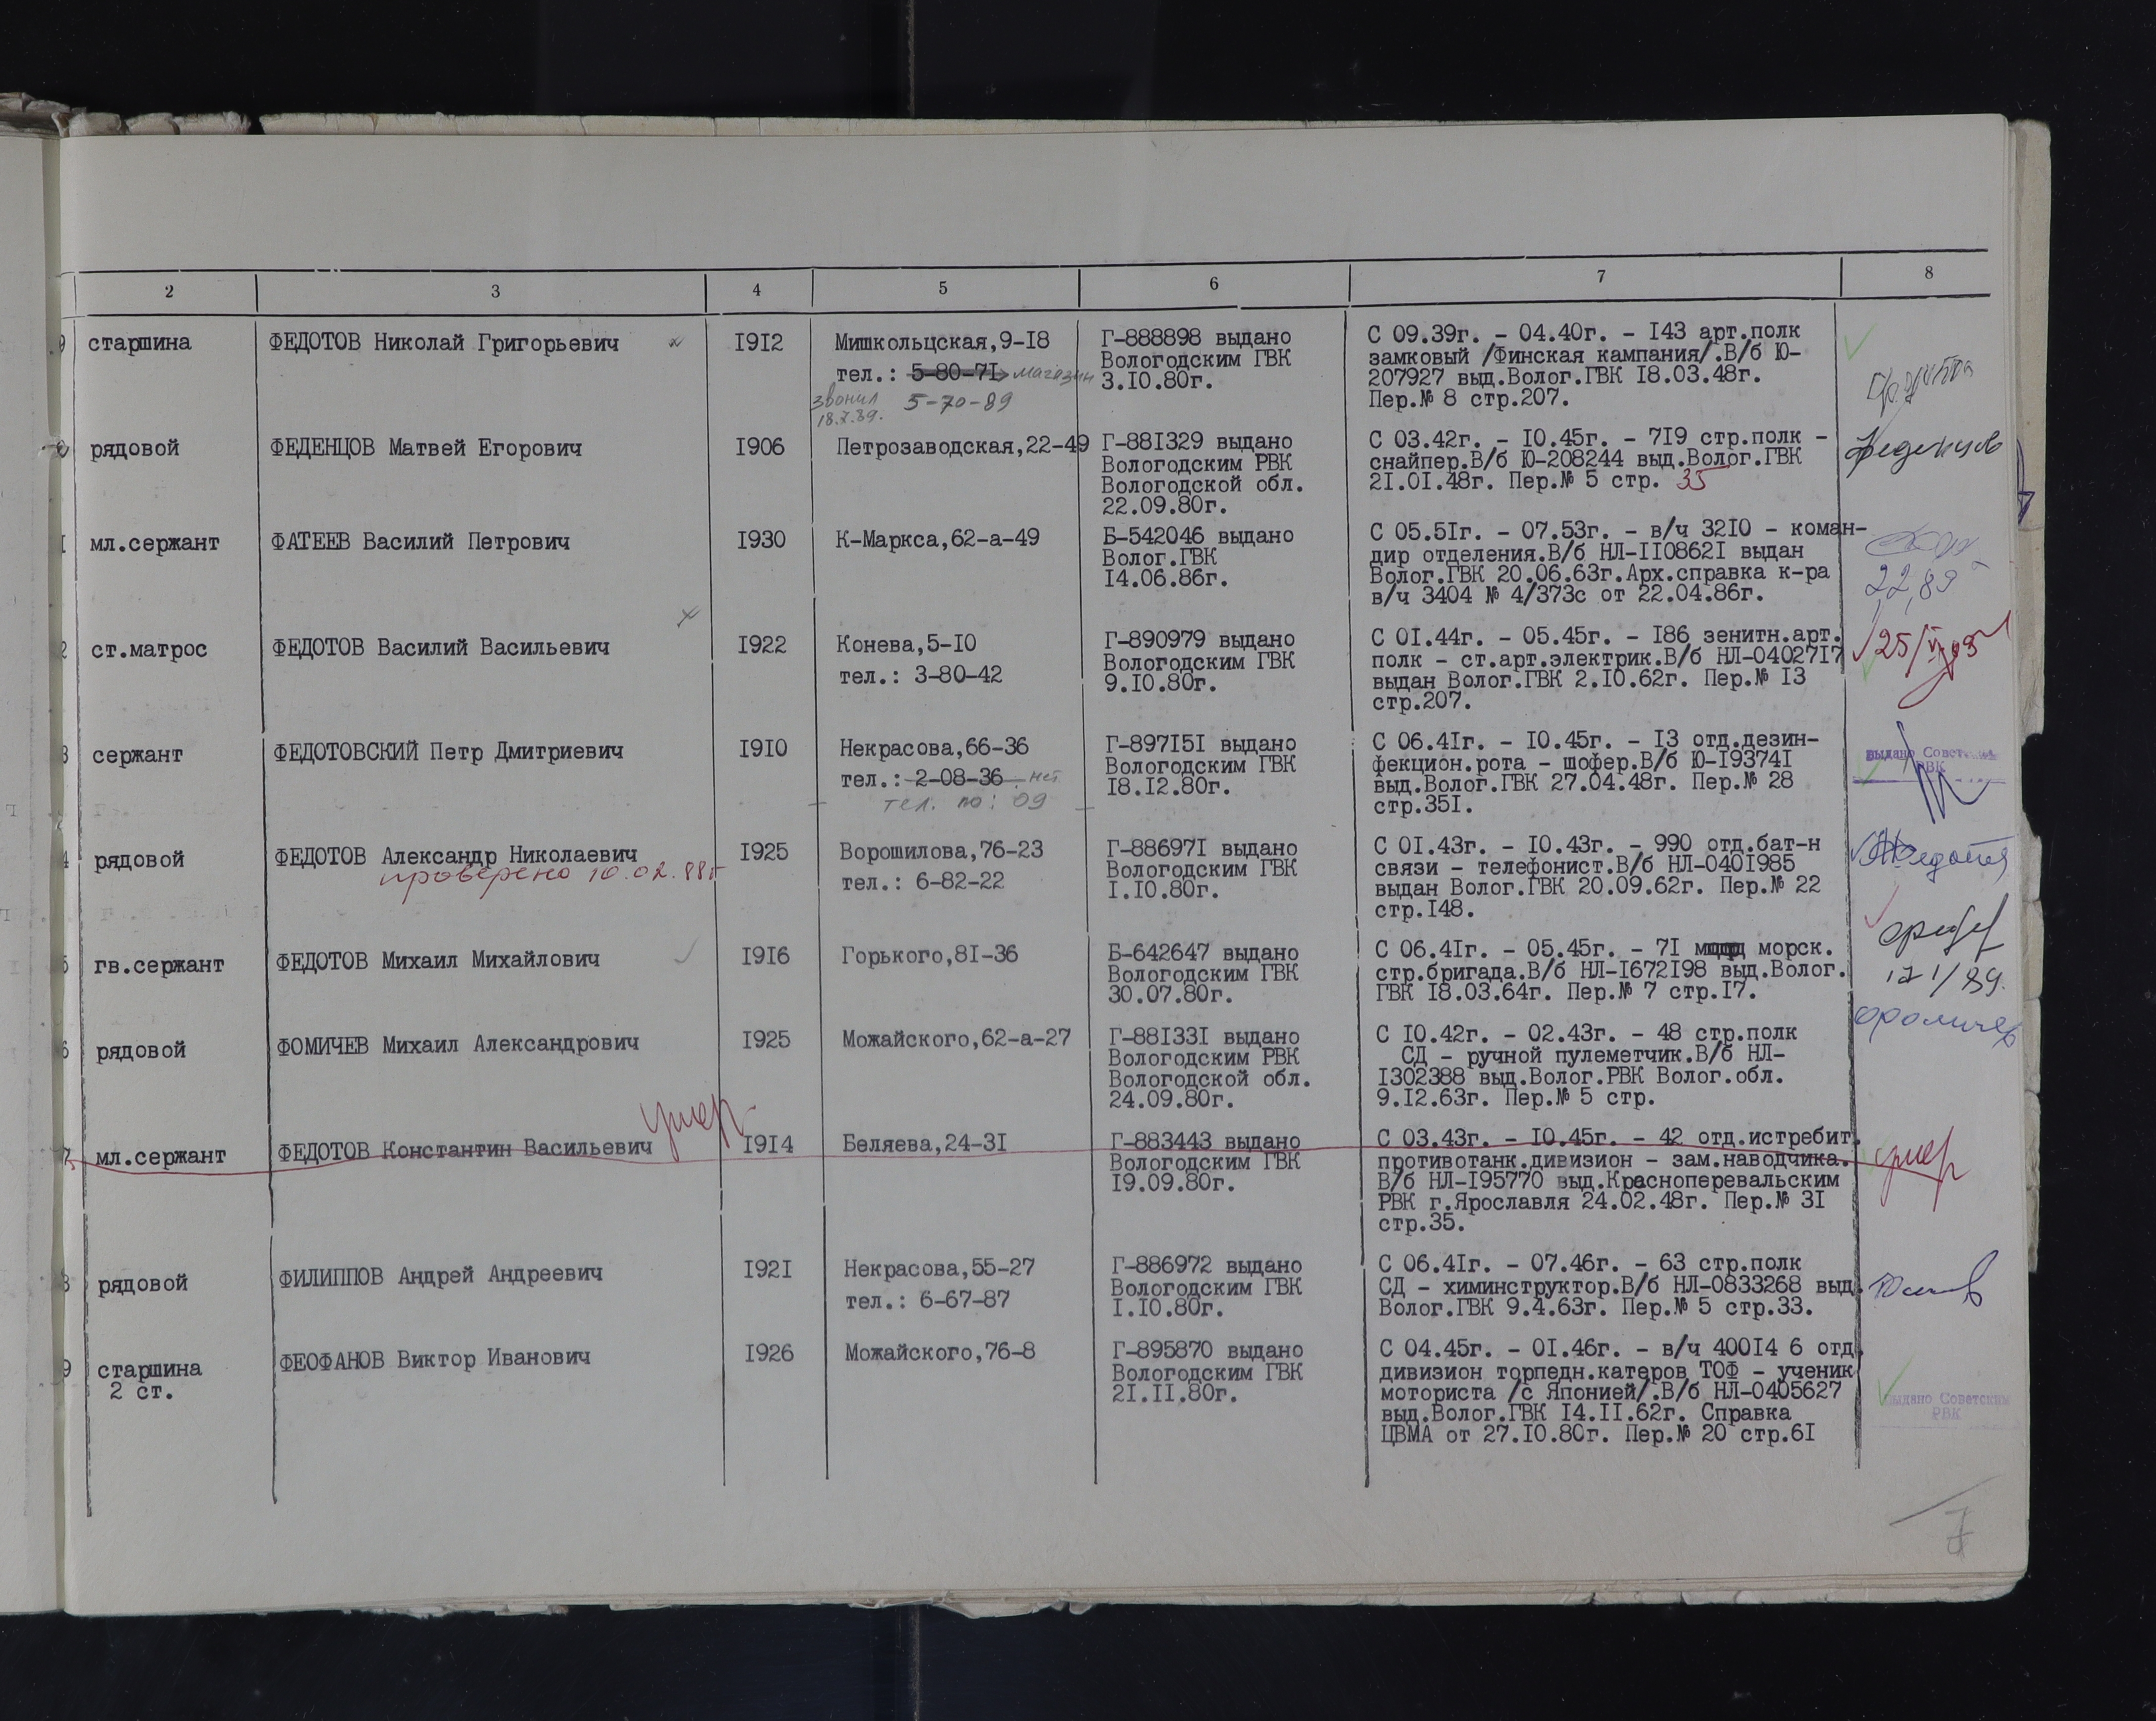 2 3 4 5 6 7 8
9 старшина ФЕДОТОВ Николай Григорьевич 1912 Мишкольцская,9-18 Г-888898 выдано С 09.39г. - 04.40г. - 143 арт.полк
тел.: 5-80-71 магазин Вологодским ГВК замковый /Финская кампания/.В/б Ю-
звонил 5-70-89 3.10.80г. 207927 выд.Волог.ГВК 18.03.48г.
18.7.89. Пер.№ 8 стр.207.
рядовой ФЕДЕНЦОВ Матвей Егорович 1906 Петрозаводская,22-49 Г-881329 выдано С 03.42г. - 10.45г. - 719 стр.полк - Феденцов
Вологодским РВК снайпер.В/б Ю-208244 выд.Волог.ГВК
Вологодской обл. 21.01.48г. Пер.№ 5 стр. 35
22.09.80г.
1 мл.сержант ФАТЕЕВ Василий Петрович 1930 К-Маркса,62-а-49 Б-542046 выдано С 05.51г. - 07.53г. - в/ч 3210 - коман-
Волог.ГВК дир отделения.В/б НЛ-1108621 выдан
14.06.86г. Волог.ГВК 20.06.63г.Арх.справка к-ра
в/ч 3404 № 4/373с от 22.04.86г.
2 ст.матрос ФЕДОТОВ Василий Васильевич 1922 Конева,5-10 Г-890979 выдано С 01.44г. - 05.45г. - 186 зенитн.арт.
тел.: 3-80-42 Вологодским ГВК полк - ст.арт.электрик.В/б НЛ-0402717
9.10.80г. выдан Волог.ГВК 2.10.62г. Пер.№ 13
стр.207.
3 сержант ФЕДОТОВСКИЙ Петр Дмитриевич 1910 Некрасова,66-36 Г-897151 выдано С 06.41г. - 10.45г. - 13 отд.дезин- выдано Советским
тел.: 2-08-36 нет Вологодским ГВК фекцион.рота - шофер.В/б Ю-193741 РВК
тел. по: 09 18.12.80г. выд.Волог.ГВК 27.04.48г. Пер.№ 28
стр.351.
4 рядовой ФЕДОТОВ Александр Николаевич 1925 Ворошилова,76-23 Г-886971 выдано С 01.43г. - 10.43г. - 990 отд.бат-н
проверено 10.02.88г тел.: 6-82-22 Вологодским ГВК связи - телефонист.В/б НЛ-0401985
1.10.80г. выдан Волог.ГВК 20.09.62г. Пер.№ 22
стр.148.
5 гв.сержант ФЕДОТОВ Михаил Михайлович 1916 Горького,81-36 Б-642647 выдано С 06.41г. - 05.45г. - 71 морск.
Вологодским ГВК стр.бригада.В/б НЛ-1672198 выд.Волог.
30.07.80г. ГВК 18.03.64г. Пер.№ 7 стр.17.
6 рядовой ФОМИЧЕВ Михаил Александрович 1925 Можайского,62-а-27 Г-881331 выдано С 10.42г. - 02.43г. - 48 стр.полк Фомичев
Вологодским РВК СД - ручной пулеметчик.В/б НЛ-
Вологодской обл. 1302388 выд.Волог.РВК Волог.обл.
24.09.80г. 9.12.63г. Пер.№ 5 стр.
умер
7 мл.сержант ФЕДОТОВ Константин Васильевич 1914 Беляева,24-31 Г-883443 выдано С 03.43г. - 10.45г. - 42 отд.истребит. умер
Вологодским ГВК противотанк.дивизион - зам.наводчика.
19.09.80г. В/б НЛ-195770 выд.Красноперевальским
РВК г.Ярославля 24.02.48г. Пер.№ 31
стр.35.
8 рядовой ФИЛИППОВ Андрей Андреевич 1921 Некрасова,55-27 Г-886972 выдано С 06.41г. - 07.46г. - 63 стр.полк
тел.: 6-67-87 Вологодским ГВК СД - химинструктор.В/б НЛ-0833268 выд.
1.10.80г. Волог.ГВК 9.4.63г. Пер.№ 5 стр.33.
9 старшина ФЕОФАНОВ Виктор Иванович 1926 Можайского,76-8 Г-895870 выдано С 04.45г. - 01.46г. - в/ч 40014 6 отд.
2 ст. Вологодским ГВК дивизион торпедн.катеров ТОФ - ученик
21.11.80г. моториста /с Японией/.В/б НЛ-0405627 выдано Советским
выд.Волог.ГВК 14.11.62г. Справка РВК
ЦВМА от 27.10.80г. Пер.№ 20 стр.61
7